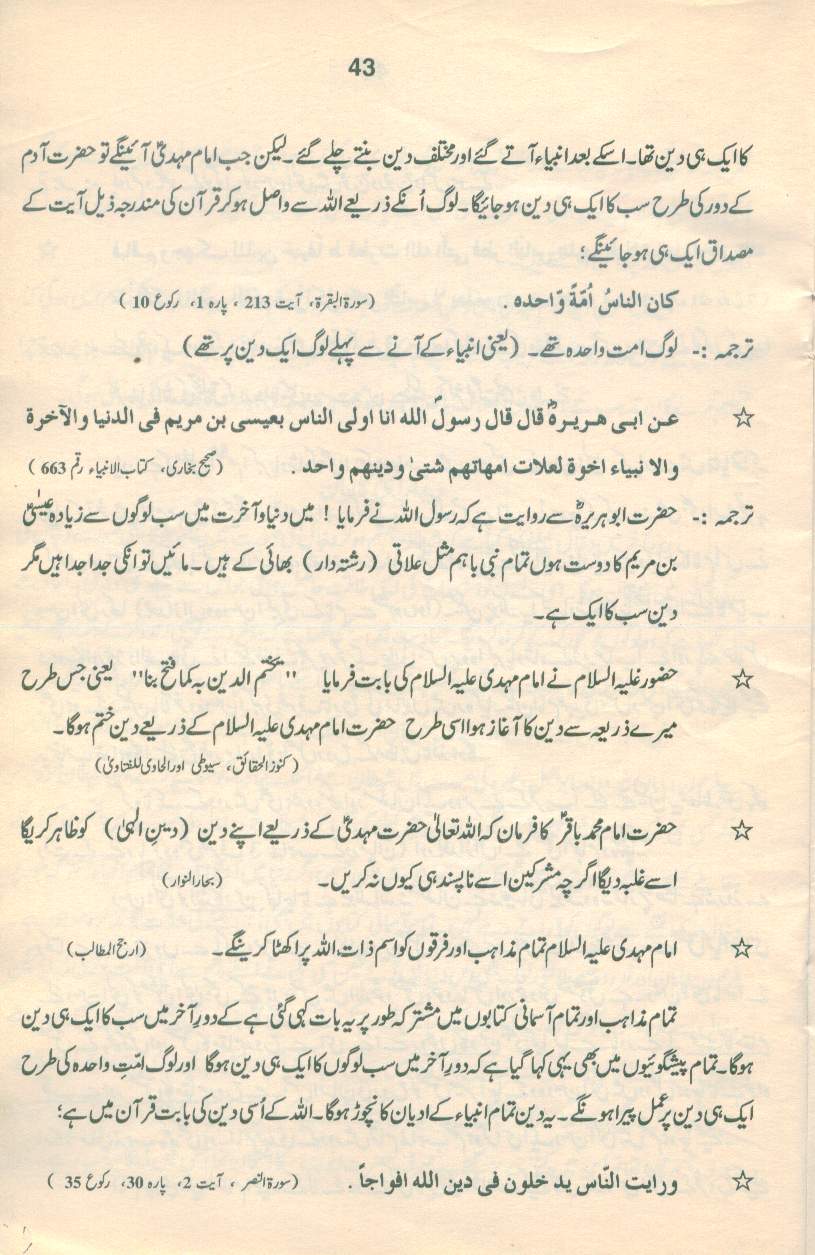 43
کا ایک ہی دین تھا۔ اسکے بعد انبیاء آتے گئے اور مختلف دین بنتے چلے گئے۔ لیکن جب امام مہدیؑ آئینگے تو حضرت آدم
کے دور کی طرح سب کا ایک ہی دین ہو جائیگا۔ لوگ اُنکے ذریعے اللہ سے واصل ہو کر قرآن کی مندرجہ ذیل آیت کے
مصداق ایک ہی ہو جائینگے؛
کان الناسُ اُمّةً وّاحده . (سورۃ البقرۃ، آیت 213 ، پارہ 1، رکوع 10 )
ترجمہ :- لوگ امت واحدہ تھے۔ (یعنی انبیاء کے آنے سے پہلے لوگ ایک دین پر تھے)
☆ عن ابی هریرهؓ قال قال رسولؐ الله انا اولی الناس بعیسی بن مریم فی الدنیا والآخرة
والا نبیاء اخوة لعلات امهاتهم شتیٰ و دینهم واحد . (صحیح بخاری، کتاب الانبیاء رقم 663 )
ترجمہ :- حضرت ابو ہریرہؓ سے روایت ہے کہ رسول اللہ نے فرمایا ! میں دنیا و آخرت میں سب لوگوں سے زیادہ عیسٰیؑ
بن مریم کا دوست ہوں تمام نبی باہم مثل علاتی (رشتہ دار) بھائی کے ہیں۔ مائیں تو انکی جدا جدا ہیں مگر
دین سب کا ایک ہے۔
☆ حضور علیہ السلام نے امام مہدی علیہ السلام کی بابت فرمایا "یختم الدین بہ کما فتح بنا" یعنی جس طرح
میرے ذریعہ سے دین کا آغاز ہوا اسی طرح حضرت امام مہدی علیہ السلام کے ذریعے دین ختم ہوگا۔
(کنوز الحقائق، سیوطی اور الحاوی للفتاویٰ)
☆ حضرت امام محمد باقرؑ کا فرمان کہ اللہ تعالیٰ حضرت مہدیؑ کے ذریعے اپنے دین (دینِ الٰہی) کو ظاہر کریگا
اسے غلبہ دیگا اگرچہ مشرکین اسے ناپسند ہی کیوں نہ کریں۔ (بحار النوار)
☆ امام مہدی علیہ السلام تمام مذاہب اور فرقوں کو اسم ذات اللہ پر اکھٹا کرینگے۔ (ارجح المطالب)
تمام مذاہب اور تمام آسمانی کتابوں میں مشترکہ طور پر یہ بات کہی گئی ہے کے دورِ آخر میں سب کا ایک ہی دین
ہوگا۔ تمام پیشگوئیوں میں بھی یہی کہا گیا ہے کہ دورِ آخر میں سب لوگوں کا ایک ہی دین ہوگا اور لوگ امّتِ واحدہ کی طرح
ایک ہی دین پر عمل پیرا ہونگے۔ یہ دین تمام انبیاء کے ادیان کا نچوڑ ہوگا۔ اللہ کے اُسی دین کی بابت قرآن میں ہے؛
☆ ورایت النّاس ید خلون فی دین الله افواجاً . (سورۃ النصر ، آیت 2، پارہ 30، رکوع 35 )